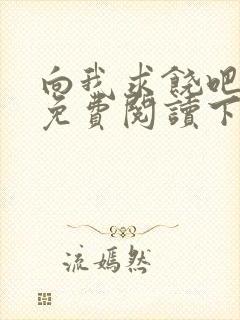 向我求饶吧
免費閱讀下
流嫣然